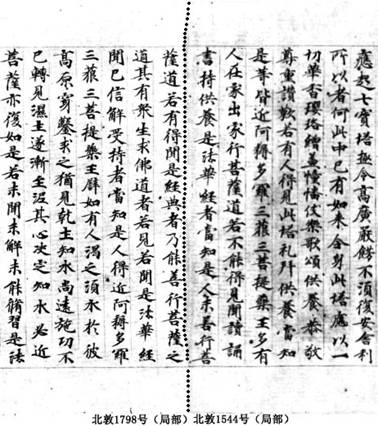 應起七寶塔極令高廣嚴餝不須復安舍利
所以者何此中已有如来全身此塔應以一
切華香瓔珞繒盖幢幡伎樂歌頌供養恭敬
尊重讃歎若有人得見此塔礼拜供養當知
是等皆近阿耨多羅三藐三菩提藥王多有
人在家出家行菩薩道若不能得見聞讀誦
書持供養是法華經者當知是人未善行菩
薩道若有得聞是經典者乃能善行菩薩之
道其有衆生求佛道者若見若聞是法華經
聞已信解受持者當知是人得近阿耨多羅
三藐三菩提藥王譬如有人渴乏須水於彼
高原穿鑿求之猶見乾土知水尚遠施功不
已轉見濕土遂漸至泥其心決定知水必近
菩薩亦復如是若未聞未解未能脩習是法
北敦1798号（局部）北敦1544号（局部）